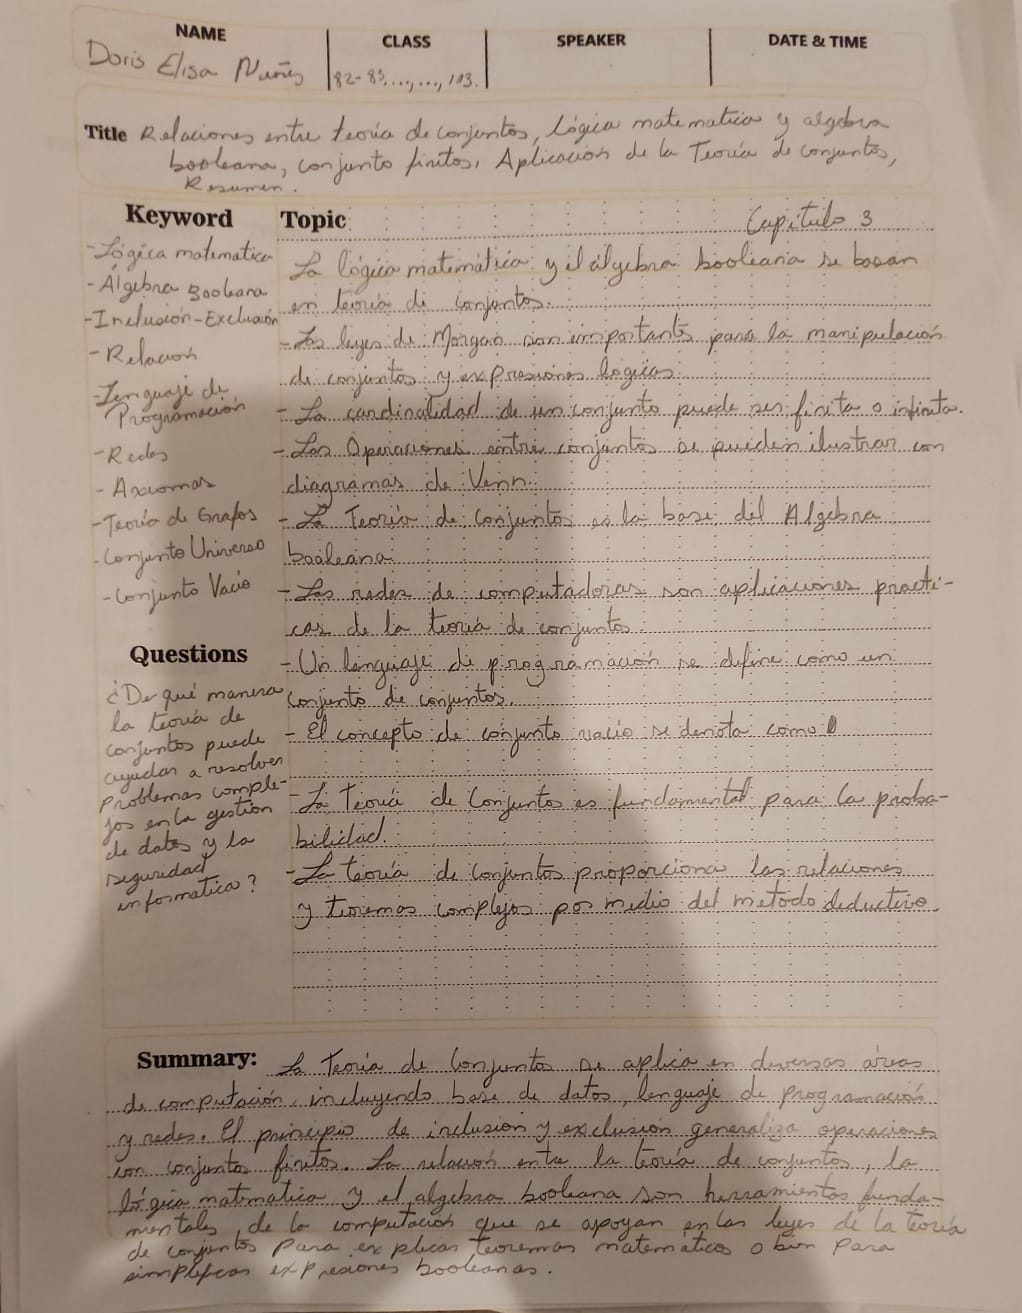 NAME
CLASS
SPEAKER
DATE & TIME
Doris Elisa Nuñez
82-83,...,...,113.
Title Relaciones entre teoría de conjuntos, lógica matematica y algebra
booleana, conjunto finitos, Aplicación de la Teoría de conjuntos,
Resumen.
Keyword
- Lógica matematica
- Álgebra Booleana
- Inclusión-Exclusión
- Relación
- Lenguaje de
Programación
- Redes
- Axiomas
- Teoría de Grafos
- Conjunto Universo
- Conjunto Vacio
Questions
¿De qué manera
la teoría de
conjuntos puede
ayudar a resolver
problemas comple-
jos en la gestión
de datos y la
seguridad
informatica?
Topic
Capítulo 3
La lógica matemática y el álgebra booleana se basan
en teoría de conjuntos.
- Las leyes de Morgan son importants para la manipulación
de conjuntos y expresiones logicas
- La cardinalidad de un conjunto puede ser finita o infinita.
- Las Operaciones entre conjuntos se pueden ilustrar con
diagramas de Venn.
- La Teoría de Conjuntos es la base del Algebra
booleana
- Las redes de computadoras son aplicaciones practi-
cas de la teoría de conjuntos.
- Un lenguaje de programación se define como un
conjunto de conjuntos.
- El concepto de conjunto vacio se denota como
- La Teoría de Conjuntos es fundamental para la proba-
bilidad.
- La teoría de Conjuntos proporciona las relaciones
y teoremas complejos por medio del metodo deductivo.
Summary: La Teoría de Conjuntos se aplica en diversas áreas
de computación, incluyendo base de datos, lenguaje de programación
y redes. El principio de inclusión y exclusión generaliza operaciones
con conjuntos finitos. La relación entre la teoría de conjuntos, la
lógica matematica y el algebra booleana son herramientas funda-
mentales, de la computación que se apoyan en las leyes de la teoría
de conjuntos para explicar teoremas matemáticos o bien para
simplificar expresiones booleanas.